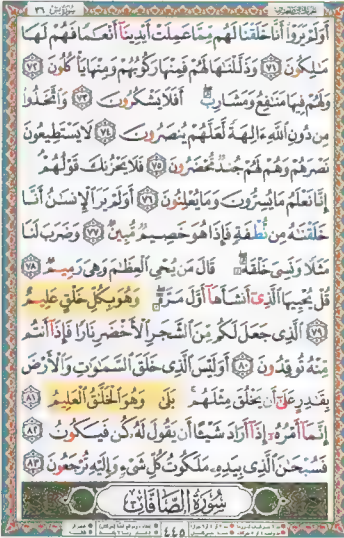 سُورَةُ يسٓ ٣٦
أَوَلَمْ يَرَوْا أَنَّا خَلَقْنَا لَهُم مِّمَّا عَمِلَتْ أَيْدِينَآ أَنْعَٰمًا فَهُمْ لَهَا
مَٰلِكُونَ ٧١ وَذَلَّلْنَٰهَا لَهُمْ فَمِنْهَا رَكُوبُهُمْ وَمِنْهَا يَأْكُلُونَ ٧٢
وَلَهُمْ فِيهَا مَنَٰفِعُ وَمَشَارِبُ ۖ أَفَلَا يَشْكُرُونَ ٧٣ وَٱتَّخَذُوا
مِن دُونِ ٱللَّهِ ءَالِهَةً لَّعَلَّهُمْ يُنصَرُونَ ٧٤ لَا يَسْتَطِيعُونَ
نَصْرَهُمْ وَهُمْ لَهُمْ جُندٌ مُّحْضَرُونَ ٧٥ فَلَا يَحْزُنكَ قَوْلُهُمْ ۘ
إِنَّا نَعْلَمُ مَا يُسِرُّونَ وَمَا يُعْلِنُونَ ٧٦ أَوَلَمْ يَرَ ٱلْإِنسَٰنُ أَنَّا
خَلَقْنَٰهُ مِن نُّطْفَةٍ فَإِذَا هُوَ خَصِيمٌ مُّبِينٌ ٧٧ وَضَرَبَ لَنَا
مَثَلًا وَنَسِىَ خَلْقَهُۥ ۖ قَالَ مَن يُحْىِ ٱلْعِظَٰمَ وَهِىَ رَمِيمٌ ٧٨
قُلْ يُحْيِيهَا ٱلَّذِىٓ أَنشَأَهَآ أَوَّلَ مَرَّةٍ ۖ وَهُوَ بِكُلِّ خَلْقٍ عَلِيمٌ
٧٩ ٱلَّذِى جَعَلَ لَكُم مِّنَ ٱلشَّجَرِ ٱلْأَخْضَرِ نَارًا فَإِذَآ أَنتُم
مِّنْهُ تُوقِدُونَ ٨٠ أَوَلَيْسَ ٱلَّذِى خَلَقَ ٱلسَّمَٰوَٰتِ وَٱلْأَرْضَ
بِقَٰدِرٍ عَلَىٰٓ أَن يَخْلُقَ مِثْلَهُم ۚ بَلَىٰ وَهُوَ ٱلْخَلَّٰقُ ٱلْعَلِيمُ ٨١
إِنَّمَآ أَمْرُهُۥٓ إِذَآ أَرَادَ شَيْـًٔا أَن يَقُولَ لَهُۥ كُن فَيَكُونُ ٨٢
فَسُبْحَٰنَ ٱلَّذِى بِيَدِهِۦ مَلَكُوتُ كُلِّ شَىْءٍ وَإِلَيْهِ تُرْجَعُونَ ٨٣
سُورَةُ ٱلصَّافَّاتِ
٤٤٥